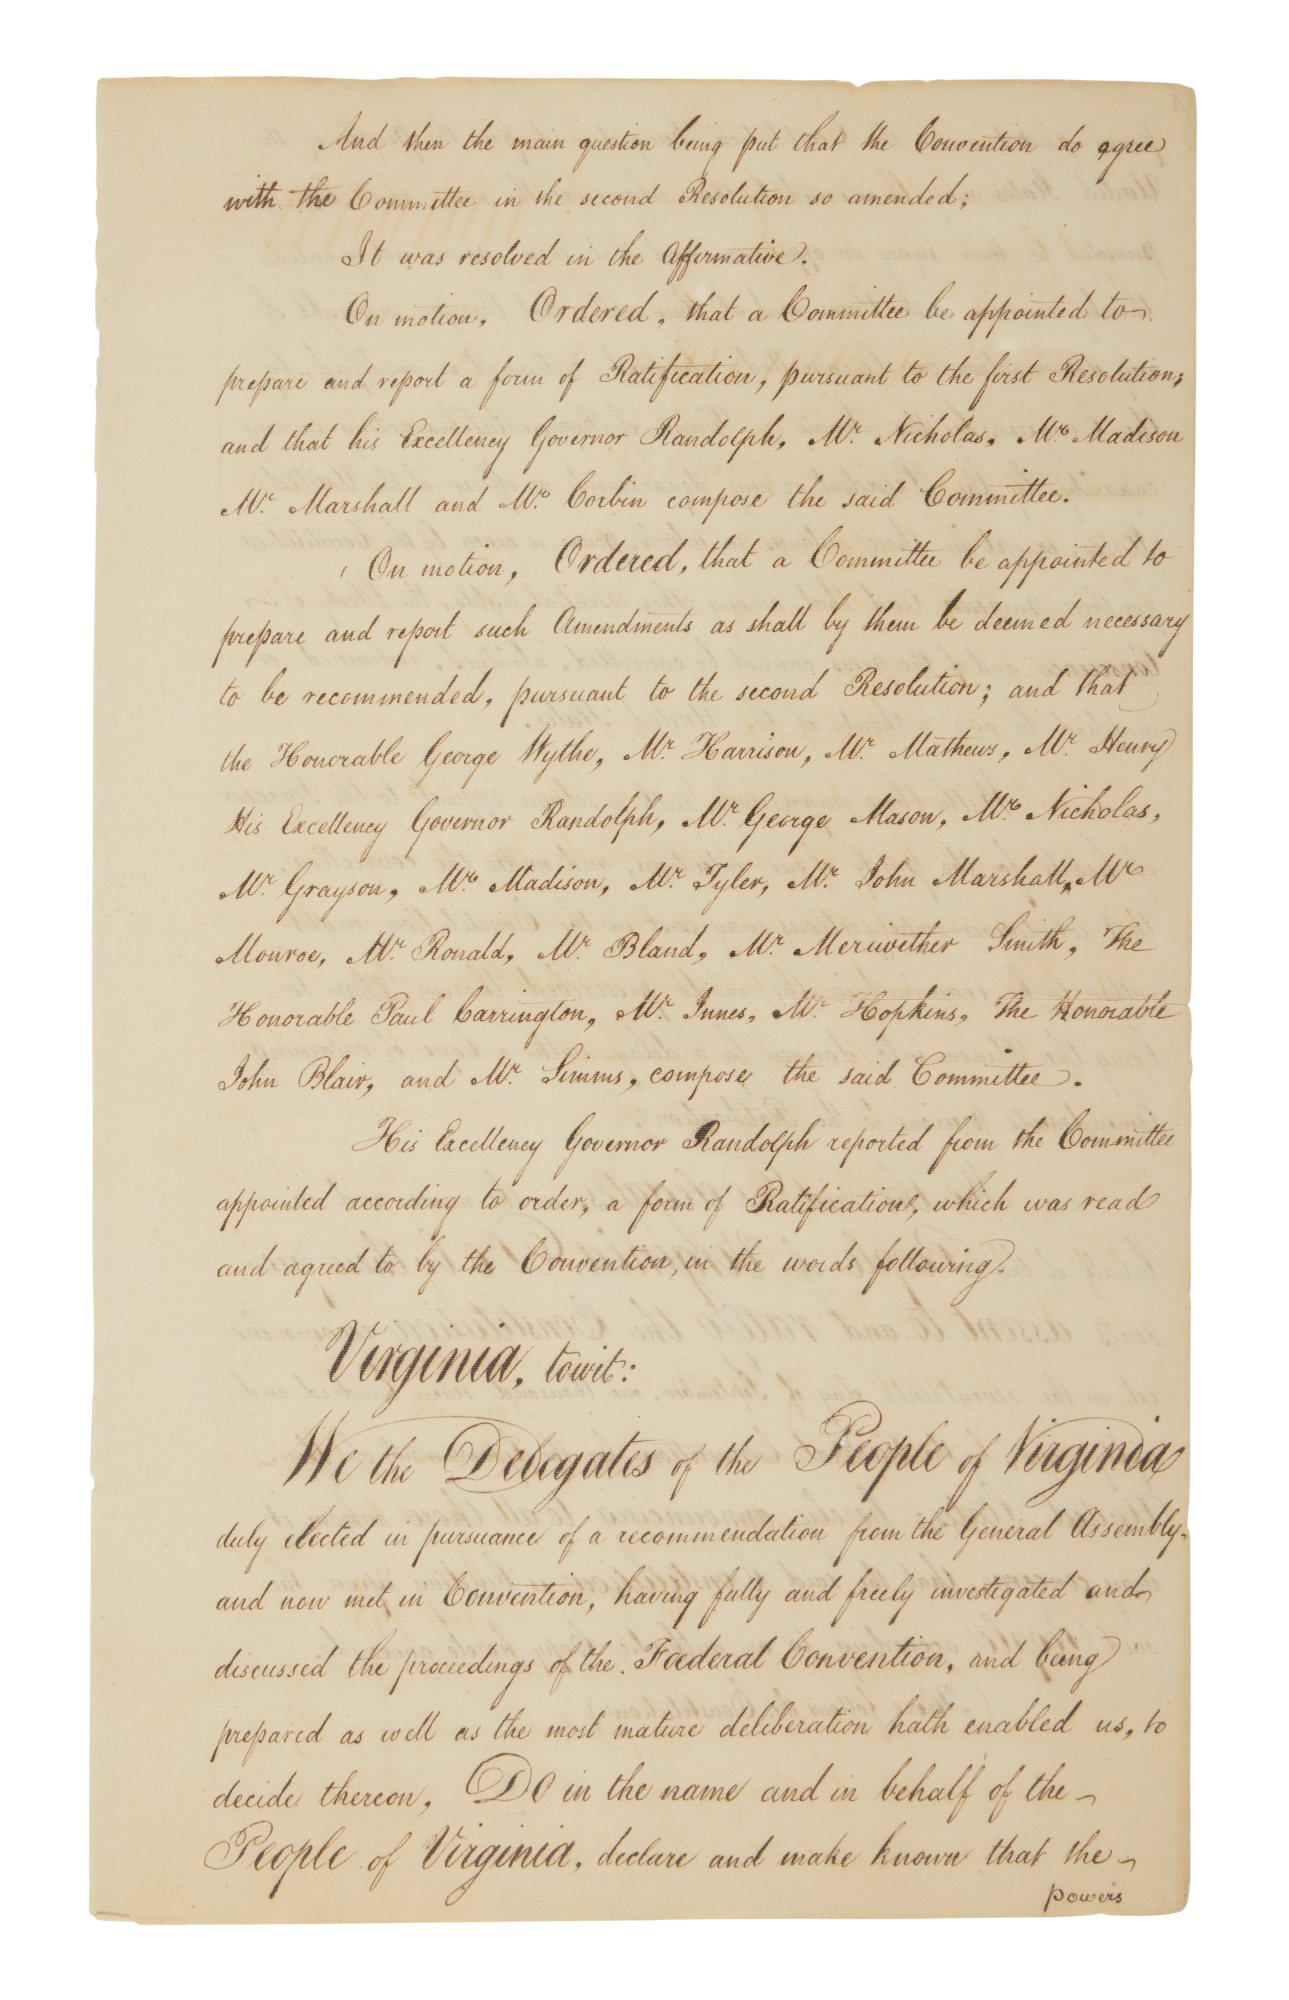 And then the main question being put that the Convention do agree
with the Committee in the second Resolution so amended;
It was resolved in the Affirmative.
On motion, Ordered, that a Committee be appointed to
prepare and report a form of Ratification, pursuant to the first Resolution;
and that his Excellency Governor Randolph, Mr. Nicholas, Mr. Madison
Mr. Marshall and Mr. Corbin compose the said Committee.
On motion, Ordered, that a Committee be appointed to
prepare and report such Amendments as shall by them be deemed necessary
to be recommended, pursuant to the second Resolution; and that
the Honorable George Wythe, Mr. Harrison, Mr. Mathews, Mr. Henry
His Excellency Governor Randolph, Mr. George Mason, Mr. Nicholas,
Mr. Grayson, Mr. Madison, Mr. Tyler, Mr. John Marshall, Mr
Monroe, Mr. Ronald, Mr. Bland, Mr. Meriwether Smith, The
Honorable Paul Carrington, Mr. Innes, Mr. Hopkins, The Honorable
John Blair, and Mr. Simms, compose the said Committee.
His Excellency Governor Randolph reported from the Committee
appointed according to order, a form of Ratification, which was read
and agreed to by the Convention, in the words following.
Virginia, towit:
We the Delegates of the People of Virginia
duly elected in pursuance of a recommendation from the General Assembly
and now met in Convention, having fully and freely investigated and
discussed the proceedings of the Fœderal Convention, and being
prepared as well as the most mature deliberation hath enabled us, to
decide thereon, DO in the name and in behalf of the
People of Virginia, declare and make known that the
powers